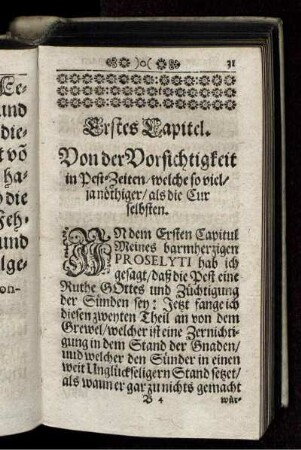 )o( 31
Erstes Capitel.
Von der Vorsichtigkeit
in Pest-Zeiten/welche so viel/
ja nöthiger/als die Cur
selbsten.
IN dem Ersten Capitul
Meines barmhertzigen
PROSELYTI hab ich
gesagt/daß die Pest eine
Ruthe GOttes und Züchtigung
der Sünden sey: Jetzt fange ich
diesen zweyten Theil an von dem
Grewel/welcher ist eine Zernichti-
gung in dem Stand der Gnaden/
und welcher den Sünder in einen
weit Unglückseligern Stand setzet/
als wann er gar zu nichts gemacht
B 4 wür-
und
die-
ha-
die
Feh-
und
lge-
on-